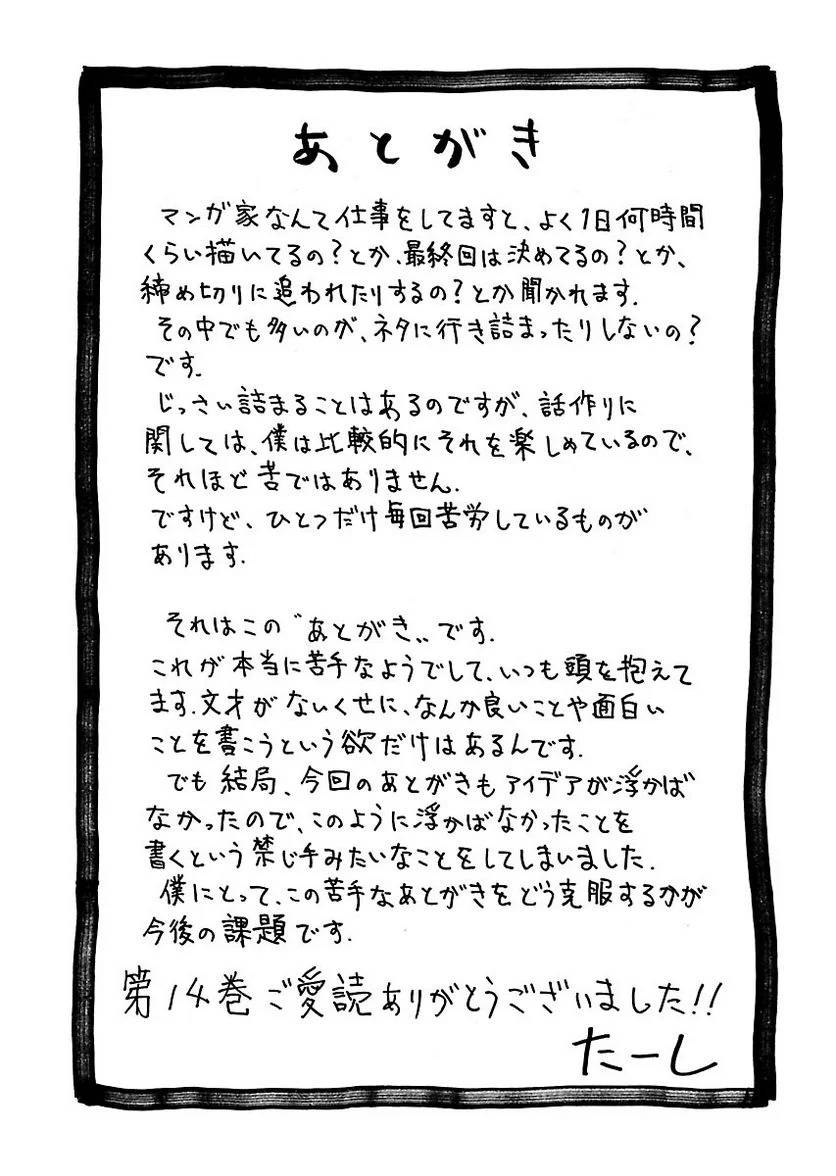 あとがき
マンガ家なんて仕事をしてますと、よく1日何時間
くらい描いてるの？とか、最終回は決めてるの？とか、
締め切りに追われたりするの？とか聞かれます.
その中でも多いのが、ネタに行き詰まったりしないの？
です.
じっさい詰まることはあるのですが、話作りに
関しては、僕は比較的にそれを楽しめているので、
それほど苦ではありません.
ですけど、ひとつだけ毎回苦労しているものが
あります.
それはこの〝あとがき〟です.
これが本当に苦手なようでして、いつも頭を抱えて
ます.文才がないくせに、なんか良いことや面白い
ことを書こうという欲だけはあるんです.
でも結局、今回のあとがきもアイデアが浮かば
なかったので、このように浮かばなかったことを
書くという禁じ手みたいなことをしてしまいました.
僕にとって、この苦手なあとがきをどう克服するかが
今後の課題です.
第14巻ご愛読ありがとうございました!!
たーし